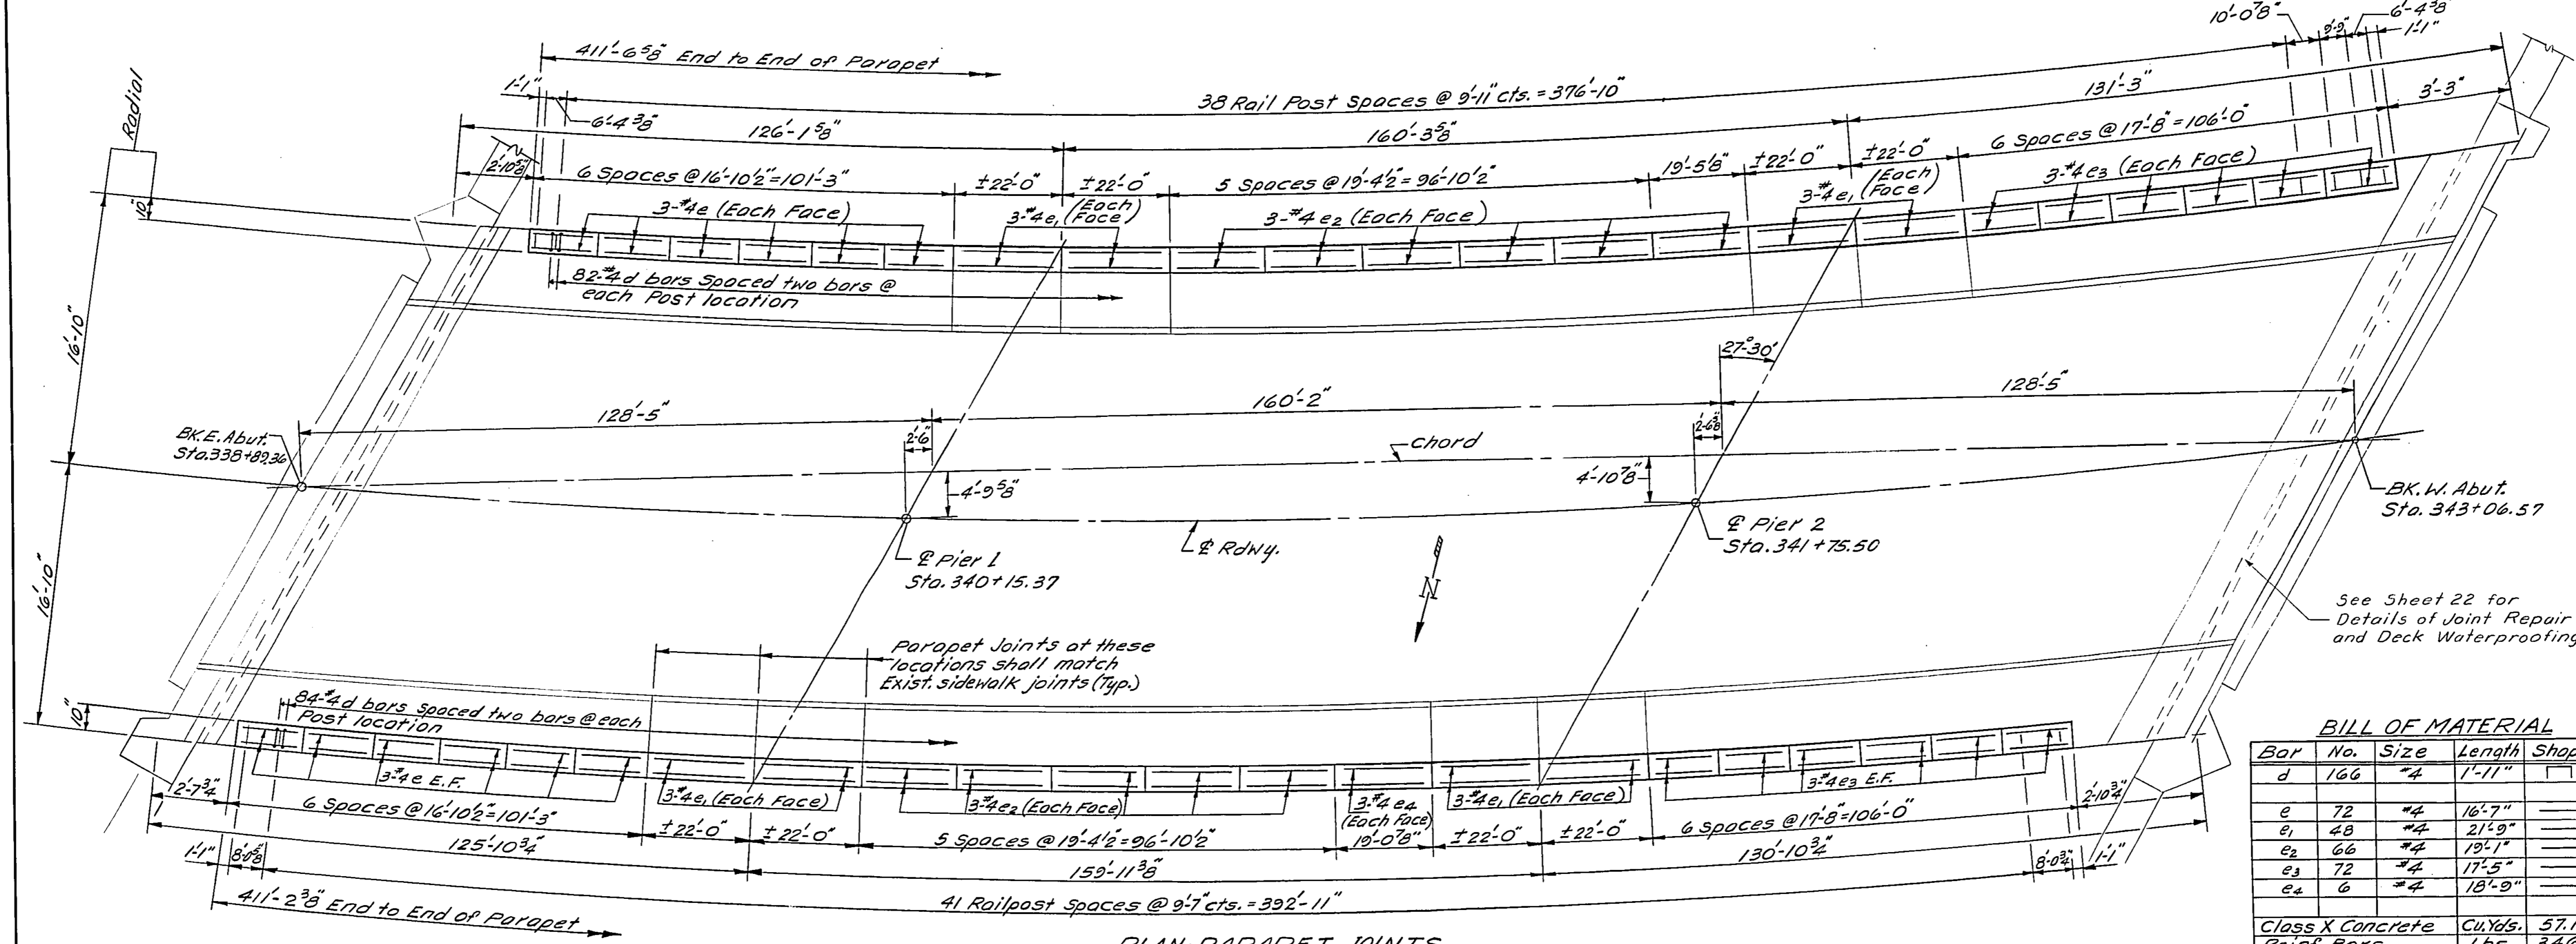 10'-0 7/8"
9'-9"
6'-4 3/8"
1'-1"
411'-6 5/8" End to End of Parapet
1'-1"
38 Rail Post Spaces @ 9'-11" cts. = 376'-10"
131'-3"
3'-3"
Radial
6'-4 3/8"
126'-1 5/8"
160'-3 5/8"
6 Spaces @ 17'-8" = 106'-0"
2'-10 5/8"
6 Spaces @ 16'-10 1/2" = 101'-3"
±22'-0"
±22'-0"
5 Spaces @ 19'-4 1/2" = 96'-10 1/2"
19'-5 1/8"
±22'-0"
±22'-0"
10"
3-#4 e (Each Face)
3-#4 e1 (Each Face)
3-#4 e2 (Each Face)
3-#4 e1 (Each Face)
3-#4 e3 (Each Face)
82-#4 d bars Spaced two bars @
each Post location
16'-10"
27°-30'
128'-5"
160'-2"
128'-5"
BK. E. Abut.
Sta. 338+89.36
2'-6"
2'-6 3/8"
Chord
4'-9 5/8"
4'-10 7/8"
BK. W. Abut.
Sta. 343+06.57
℄ Pier 1
Sta. 340+15.37
℄ Rdwy.
℄ Pier 2
Sta. 341+75.50
N
16'-10"
See Sheet 22 for
Details of Joint Repair
and Deck Waterproofing
Parapet Joints at these
locations shall match
Exist. sidewalk joints (Typ.)
10"
84-#4 d bars spaced two bars @ each
Post location
3-#4 e E.F.
3-#4 e1 (Each Face)
3-#4 e2 (Each Face)
3-#4 e4
(Each Face)
3-#4 e1 (Each Face)
3-#4 e3 E.F.
2'-7 3/4"
6 Spaces @ 16'-10 1/2" = 101'-3"
±22'-0"
±22'-0"
5 Spaces @ 19'-4 1/2" = 96'-10 1/2"
19'-0 7/8"
±22'-0"
±22'-0"
6 Spaces @ 17'-8" = 106'-0"
2'-10 3/4"
125'-10 3/4"
159'-11 3/8"
130'-10 3/4"
1'-1"
8'-0 5/8"
8'-0 3/4"
1'-1"
411'-2 3/8" End to End of Parapet
41 Railpost Spaces @ 9'-7" cts. = 392'-11"
PLAN PARAPET JOINTS
BILL OF MATERIAL
Bar No. Size Length
d 166 #4 1'-11"
e 72 #4 16'-7"
e1 48 #4 21'-9"
e2 66 #4 19'-1"
e3 72 #4 17'-5"
e4 6 #4 18'-9"
Class X Concrete Cu.Yds.